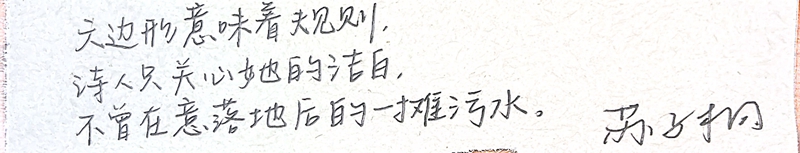 六边形意味着规则，
诗人只关心她的洁白，
不曾在意落地后的一摊污水。
苏子桐